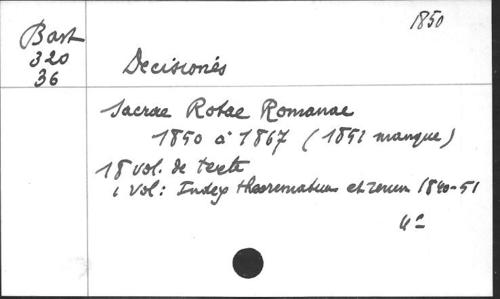 1850
Bast
320
36
Decisiones
Sacrae Rotae Romanae
1850 à 1867 (1851 manque)
18 vol. de texte
1 vol: Index theorematum et rerum 1840-51
4°